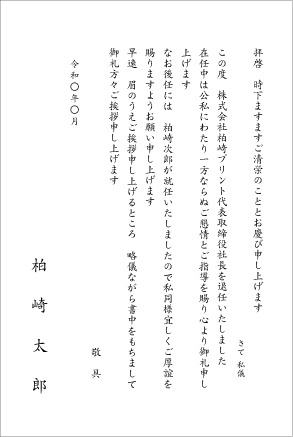 拝啓　時下ますますご清栄のこととお慶び申し上げます
さて　私儀
この度　株式会社柏崎プリント代表取締役社長を退任いたしました
在任中は公私にわたり一方ならぬご懇情とご指導を賜り心より御礼申し
上げます
なお後任には　柏崎次郎が就任いたしましたので私同様宜しくご厚誼を
賜りますようお願い申し上げます
早速　眉のうえご挨拶申し上げるところ　略儀ながら書中をもちまして
御礼方々ご挨拶申し上げます
敬具
令和〇年〇月
柏崎太郎